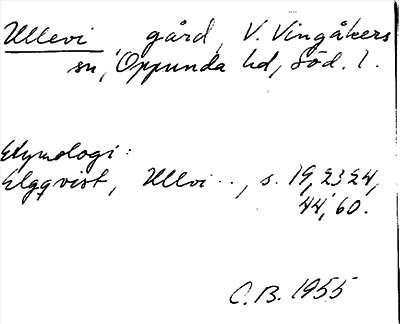 Ullevi, gård, V. Vingåkers
sn, Oppunda hd, Söd. l.
Etymologi:
Elgqvist, Ullvi.., s. 19, 23 24,
44, 60.
C.B. 1955